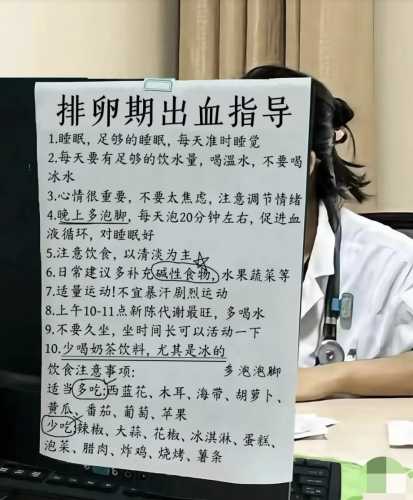 排卵期出血指导
1.睡眠，足够的睡眠，每天准时睡觉
2.每天要有足够的饮水量，喝温水，不要喝
冰水
3.心情很重要，不要太焦虑，注意调节情绪
4.晚上多泡脚，每天泡20分钟左右，促进血
液循环，对睡眠好
5.注意饮食，以清淡为主
6.日常建议多补充碱性食物，水果蔬菜等
7.适量运动！不宜暴汗剧烈运动
8.上午10-11点新陈代谢最旺，多喝水
9.不要久坐，坐时间长可以活动一下
10.少喝奶茶饮料，尤其是冰的
饮食注意事项： 多泡泡脚
适当多吃：西蓝花、木耳、海带、胡萝卜、
黄瓜、番茄、葡萄、苹果
少吃：辣椒、大蒜、花椒、冰淇淋、蛋糕、
泡菜、腊肉、炸鸡、烧烤、薯条